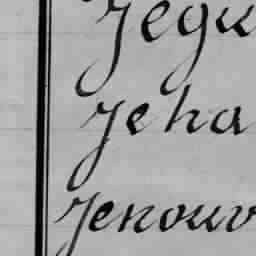 Jégu
Jeha
Jenouv